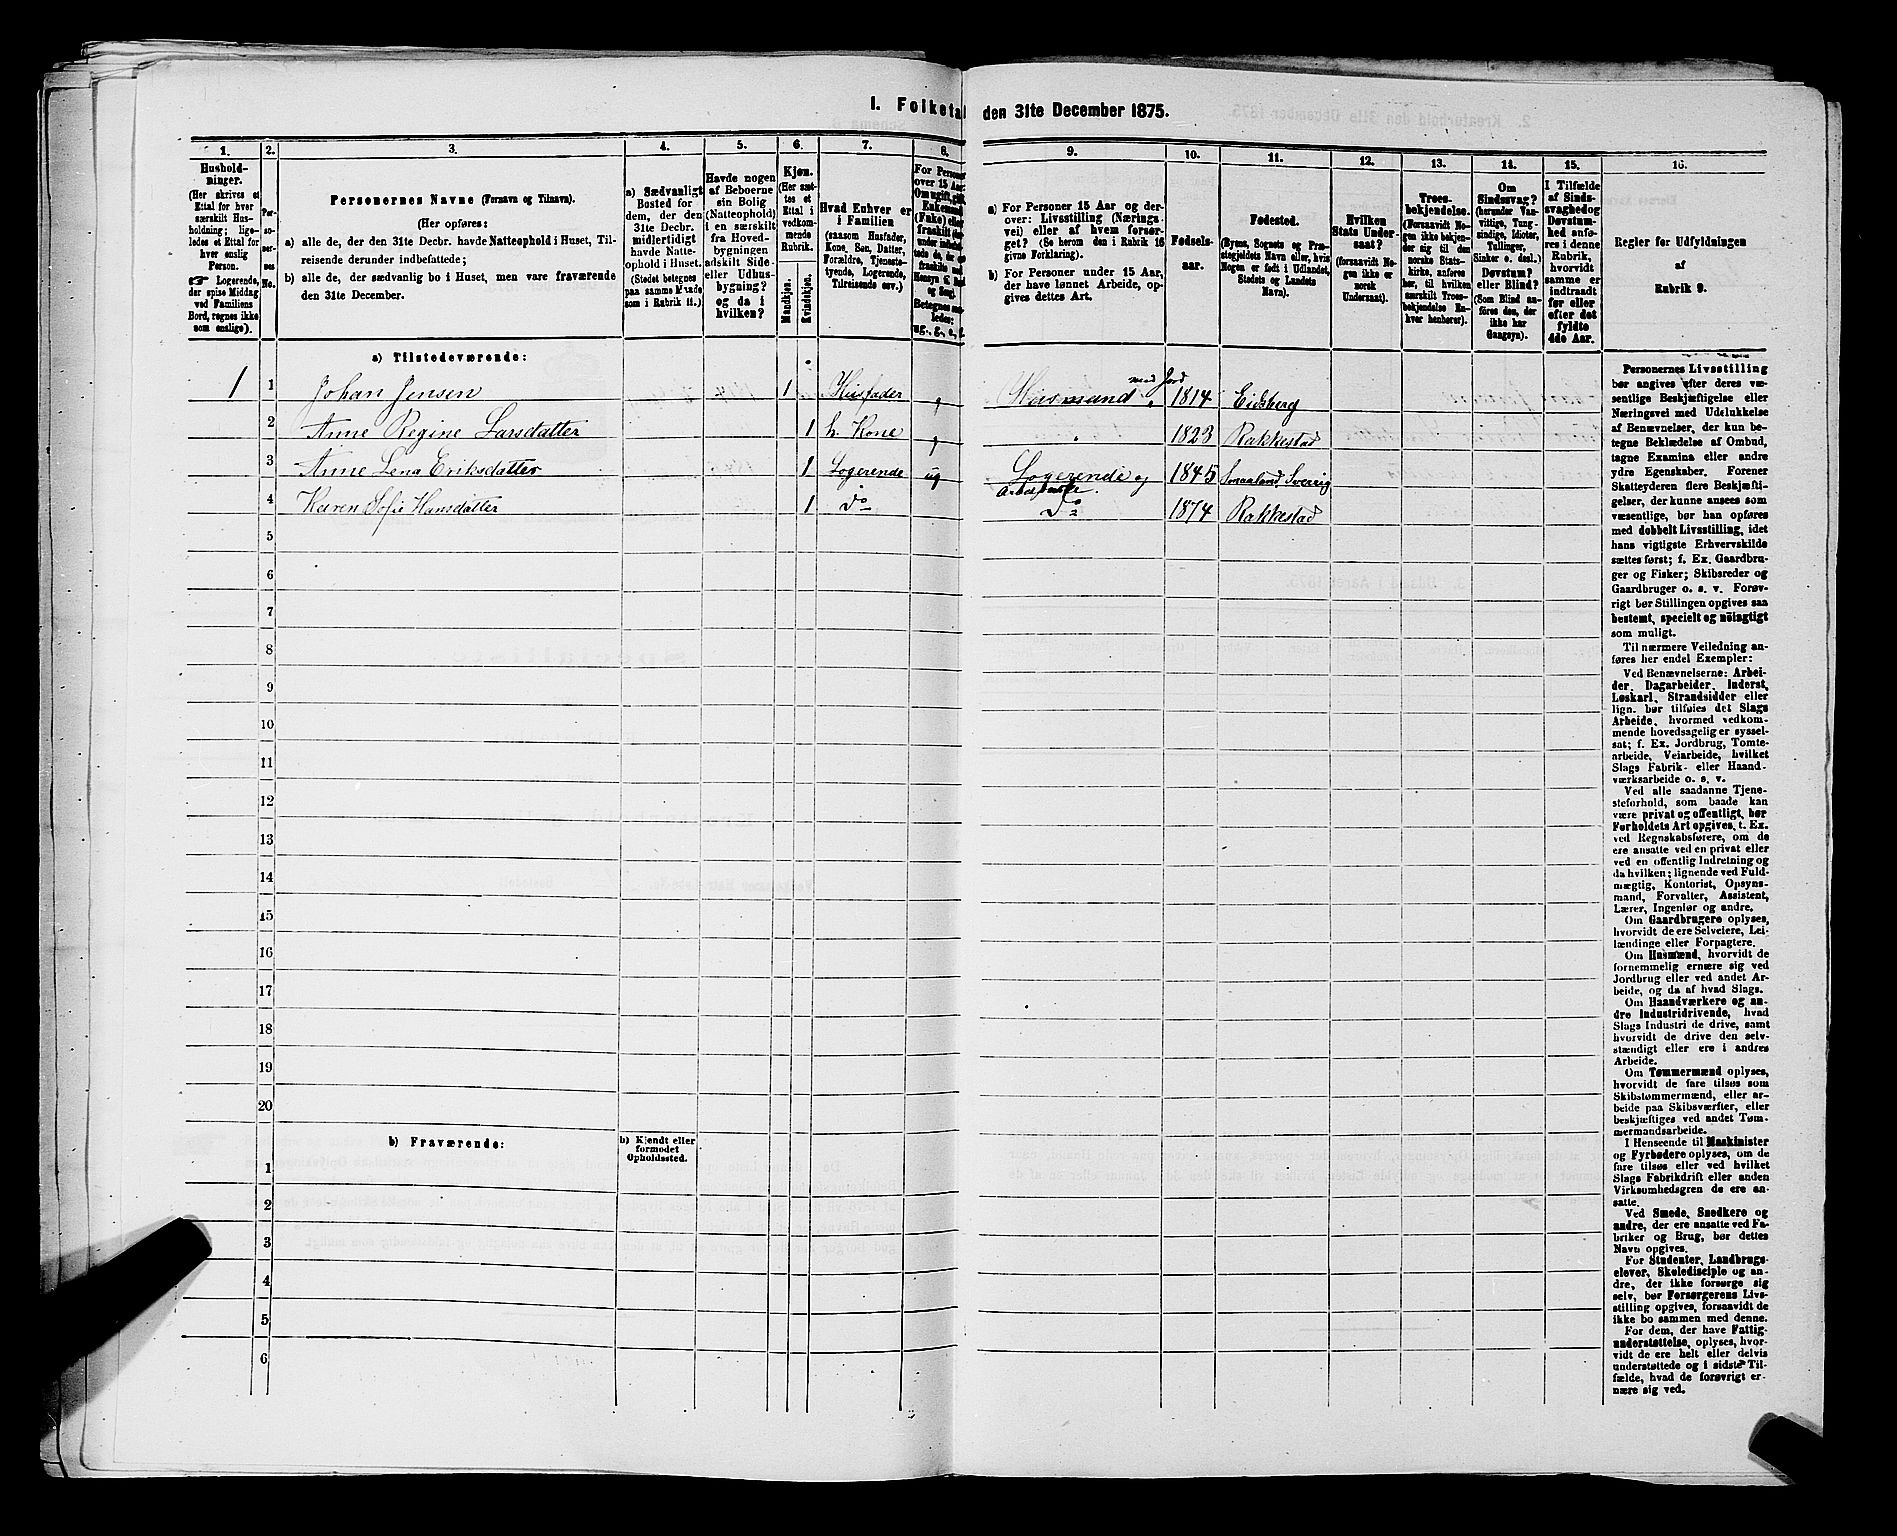 I. Folketal den 31te December 1875.
1.
2.
3.
4.
5.
6.
7.
8.
9.
10.
11.
12.
13.
14.
15.
16.
Hushold-
ninger.
(Her skrives et
Ettal for hver
særskilt Hus-
holdning; lige-
ledes et Ettal for
hver enslig
Person.
☞ Logerende,
der spise Middag
ved Familiens
Bord, regnes ikke
som enslige).
Per-
so-
ner-
nes
No.
Personernes Navne (Fornavn og Tilnavn).
(Her opføres:
a) alle de, der den 31te Decbr. havde Natteophold i Huset, Til-
reisende derunder indbefattede;
b) alle de, der sædvanlig bo i Huset, men vare fraværende
den 31te December.
a) Sædvanligt
Bosted for
dem, der den
31te Decbr.
midlertidigt
havde Natte-
ophold i Huset.
(Stedet betegnes
paa samme Maade
som i Rubrik 11.)
Havde nogen
af Beboerne
sin Bolig
(Natteophold)
i en særskilt
fra Hoved-
bygningen
adskilt Side-
eller Udhus-
bygning?
og da i
hvilken?
Kjøn.
(Her sæt-
tes et
Ettal i
vedkom-
mende
Rubrik.
Mandkjøn.
Kvindekjøn.
Hvad Enhver er
i Familien
(saasom Husfader,
Kone, Søn, Datter,
Forældre, Tjeneste-
tyende, Logerende,
Tilreisende osv.)
For Personer
over 15 Aar:
Om ugift, gift,
Enkemand
(Enke) eller
fraskilt
Betegnes saa-
ledes:
ug., g., e., f.
a) For Personer 15 Aar og der-
over: Livsstilling (Nærings-
vei) eller af hvem forsør-
get? (Se herom den i Rubrik 16
givne Forklaring).
b) For Personer under 15 Aar,
der have lønnet Arbeide, op-
gives dettes Art.
Fødsels-
aar.
Fødested.
(Byens, Sognets og Præ-
stegjeldets Navn eller, hvis
Nogen er født i Udlandet,
Stedets og Landets
Navn).
Hvilken
Stats Under-
saat?
(forsaavidt No-
gen ikke er
norsk
Undersaat).
Troes-
bekjendelse.
(Forsaavidt No-
gen ikke bekjen-
der sig til den
norske Stats-
kirke, anføres
her, til hvilken
særskilt Troes-
bekjendelse En-
hver henhører).
Om
Sindssvag?
(herunder Van-
vittige, Tung-
sindige, Idioter,
Tullinger,
Sinker o. desl.)
Døvstum?
eller Blind?
(Som Blind an-
føres den, der
ikke har
Gangsyn).
I Tilfælde
af Sinds-
svaghed og
Døvstum-
hed anfø-
res i denne
Rubrik,
hvorvidt
samme er
indtraadt
før eller
efter det
fyldte
4de Aar.
Regler for Udfyldningen
af
Rubrik 9.
a) Tilstedeværende:
1 1 Johan Jensen 1 Husfader g Husmand med Jord 1814 Eidsberg
2 Anne Regine Larsdatter 1 h. Kone g " 1823 Rakkestad
3 Anne Lena Eriksdatter 1 Logerende ug Logerende og 1845 Smaaland, Sverrig
4 Karen Sofie Hansdatter 1 do do 1874 Rakkestad
5
6
7
8
9
10
11
12
13
14
15
16
17
18
19
20
b) Fraværende:
b) Kjendt eller
formodet
Opholdssted.
1
2
3
4
5
6
Personernes Livsstilling
bør angives efter deres væ-
sentlige Beskjæftigelse eller
Næringsvei med Udelukkelse
af Benævnelser, der kun be-
tegne Beklædelse af Ombud,
tagne Examina eller andre
ydre Egenskaber. Forener
Skatteyderen flere Beskjæfti-
gelser, der kunne ansees som
væsentlige, bør han opføres
med dobbelt Livsstilling, idet
hans vigtigste Erhvervskilde
sættes først; f. Ex. Gaardbru-
ger og Fisker; Skibsreder og
Gaardbruger o. s. v. Forøv-
rigt bør Stillingen opgives saa
bestemt, specielt og nöiagtigt
som muligt.
Til nærmere Veiledning an-
føres her endel Exempler:
Ved Benævnelserne: Arbei-
der, Dagarbeider, Inderst,
Løskarl, Strandsidder eller
lign. bør tilføies det Slags
Arbeide, hvormed vedkom-
mende hovedsagelig er syssel-
sat; f. Ex. Jordbrug, Tomte-
arbeide, Veiarbeide, hvilket
Slags Fabrik- eller Haand-
værksarbeide o. s. v.
Ved alle saadanne Tjene-
steforhold, som baade kan
være privat og offentligt, bør
Forholdets Art opgives, t. Ex.
ved Regnskabsførere, om de
ere ansatte ved en privat eller
ved en offentlig Indretning og
da hvilken; lignende ved Fuld-
mægtig, Kontorist, Opsyns-
mand, Forvalter, Assistent,
Lærer, Ingeniør og andre.
Om Gaardbrugere oplyses,
hvorvidt de ere Selveiere, Lei-
lændinge eller Forpagtere.
Om Husmænd, hvorvidt de
fornemmelig ernære sig ved
Jordbrug eller ved andet Ar-
beide, og da af hvad Slags.
Om Haandværkere og an-
dre Industridrivende, hvad
Slags Industri de drive, samt
hvorvidt de drive den selv-
stændigt eller ere i andres
Arbeide.
Om Tømmermænd oplyses,
hvorvidt de fare tilsøs som
Skibstømmermænd, eller ar-
beide paa Skibsværfter, eller
beskjæftiges ved andet Tøm-
mermandsarbeide.
I Henseende til Maskinister
og Fyrbødere oplyses, om de
fare tilsøs eller ved hvilket
Slags Fabrikdrift eller anden
Virksomhedsgren de ere an-
satte.
Ved Smede, Snedkere og
andre, der ere ansatte ved Fa-
briker og Brug, bør dettes
Navn opgives.
For Studenter, Landbrugs-
elever, Skoledisciple og an-
dre, der ikke forsørge sig
selv, bør Forsørgerens Livs-
stilling opgives, forsaavidt de
ikke bo sammen med denne.
For dem, der have Fattig-
understøttelse, oplyses, hvor-
vidt de ere helt eller delvis
understøttede og i sidste Til-
fælde, hvad de forøvrigt er-
nære sig ved.